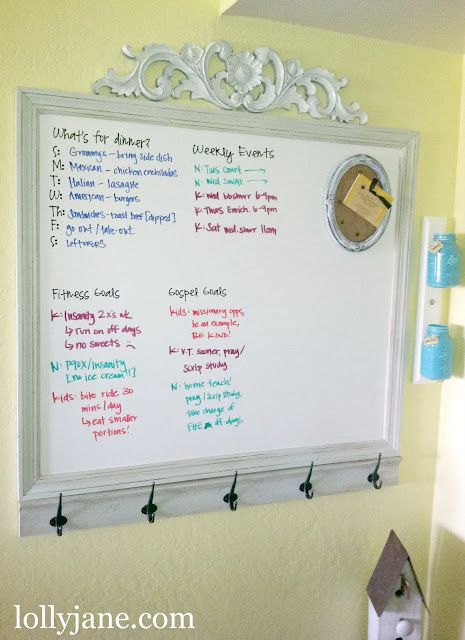 What's for dinner?
S: Grammy's - bring side dish
M: Mexican - chicken enchiladas
T: Italian - lasagne
W: American - burgers
Th: Sandwiches - roast beef [dipped]
F: go out / take-out
S: leftovers
Weekly Events
N: Tues Court →
N: Wed SWAT →
K: Wed bbshwr 6-9pm
K: Thurs Enrich. 6-9pm
K: Sat wed. shwr 11am
Fitness Goals
K: Insanity 2x's wk
↳ run on off days
↳ no sweets
N: P90X/insanity
[no ice cream!!]
kids: bike ride 30
mins/day
↳ eat smaller
portions!
Gospel Goals
kids: missionary opps,
be an example,
BE KIND!
K: V.T. sooner, pray/
scrip study
N: home teach!
pray/scrip study,
take charge of
FHE off-days
lollyjane.com